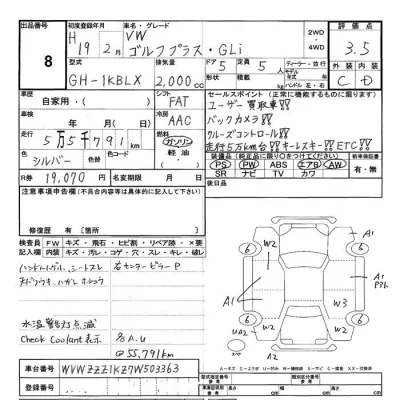 出品番号 初度登録年月 車名・グレード 2WD・4WD 評価点
8 H 19年 2月 VW ゴルフプラス・GLi 3.5
型式 排気量 ドア 定員 ディーラー・並行 外装 内装
GH-1KBLX 2,000cc 5 5 モデル年式 ハンドル 左・右 C D
車歴 シフト 形状 積載 kg セールスポイント(正常に機能するものに限ります)
自家用・( ) FAT ユーザー買取車!!
車検 冷房 バックカメラ!!
年 月 AAC クルーズコントロール!!
走行 燃料 走行5万km台!!キーレスキー!!ETC!!
5万5千791km ガソリン 軽油 装備品(純正品に限り○をつけてください) 新車保証書
色 シルバー 色替 PS PW ABS エアB AW 有・無
SR ナビ TV カワ
R券 19,070円 名変期限 月 日 後日品
注意事項申告欄(不具合箇所等)
修復歴 有 [箇所 ]
検査員記入欄 FW キズ・飛石・ヒビ割・リペア跡・×要
内装 キズ・汚レ・コゲ・穴・スレ・キレ・破レ
右センターピラーP
水温警告灯点滅
Check Coolant表示 %A.U
@55,791km
6 6 6 6
W2 W2 W3 A1 A1 A1 P3ﾊ UA2 A2
A=キズ
車台番号 WVWZZZ1KZ7W503363
登録番号
型式指定番号 類別区分番号
長さ cm 幅 cm 高さ cm